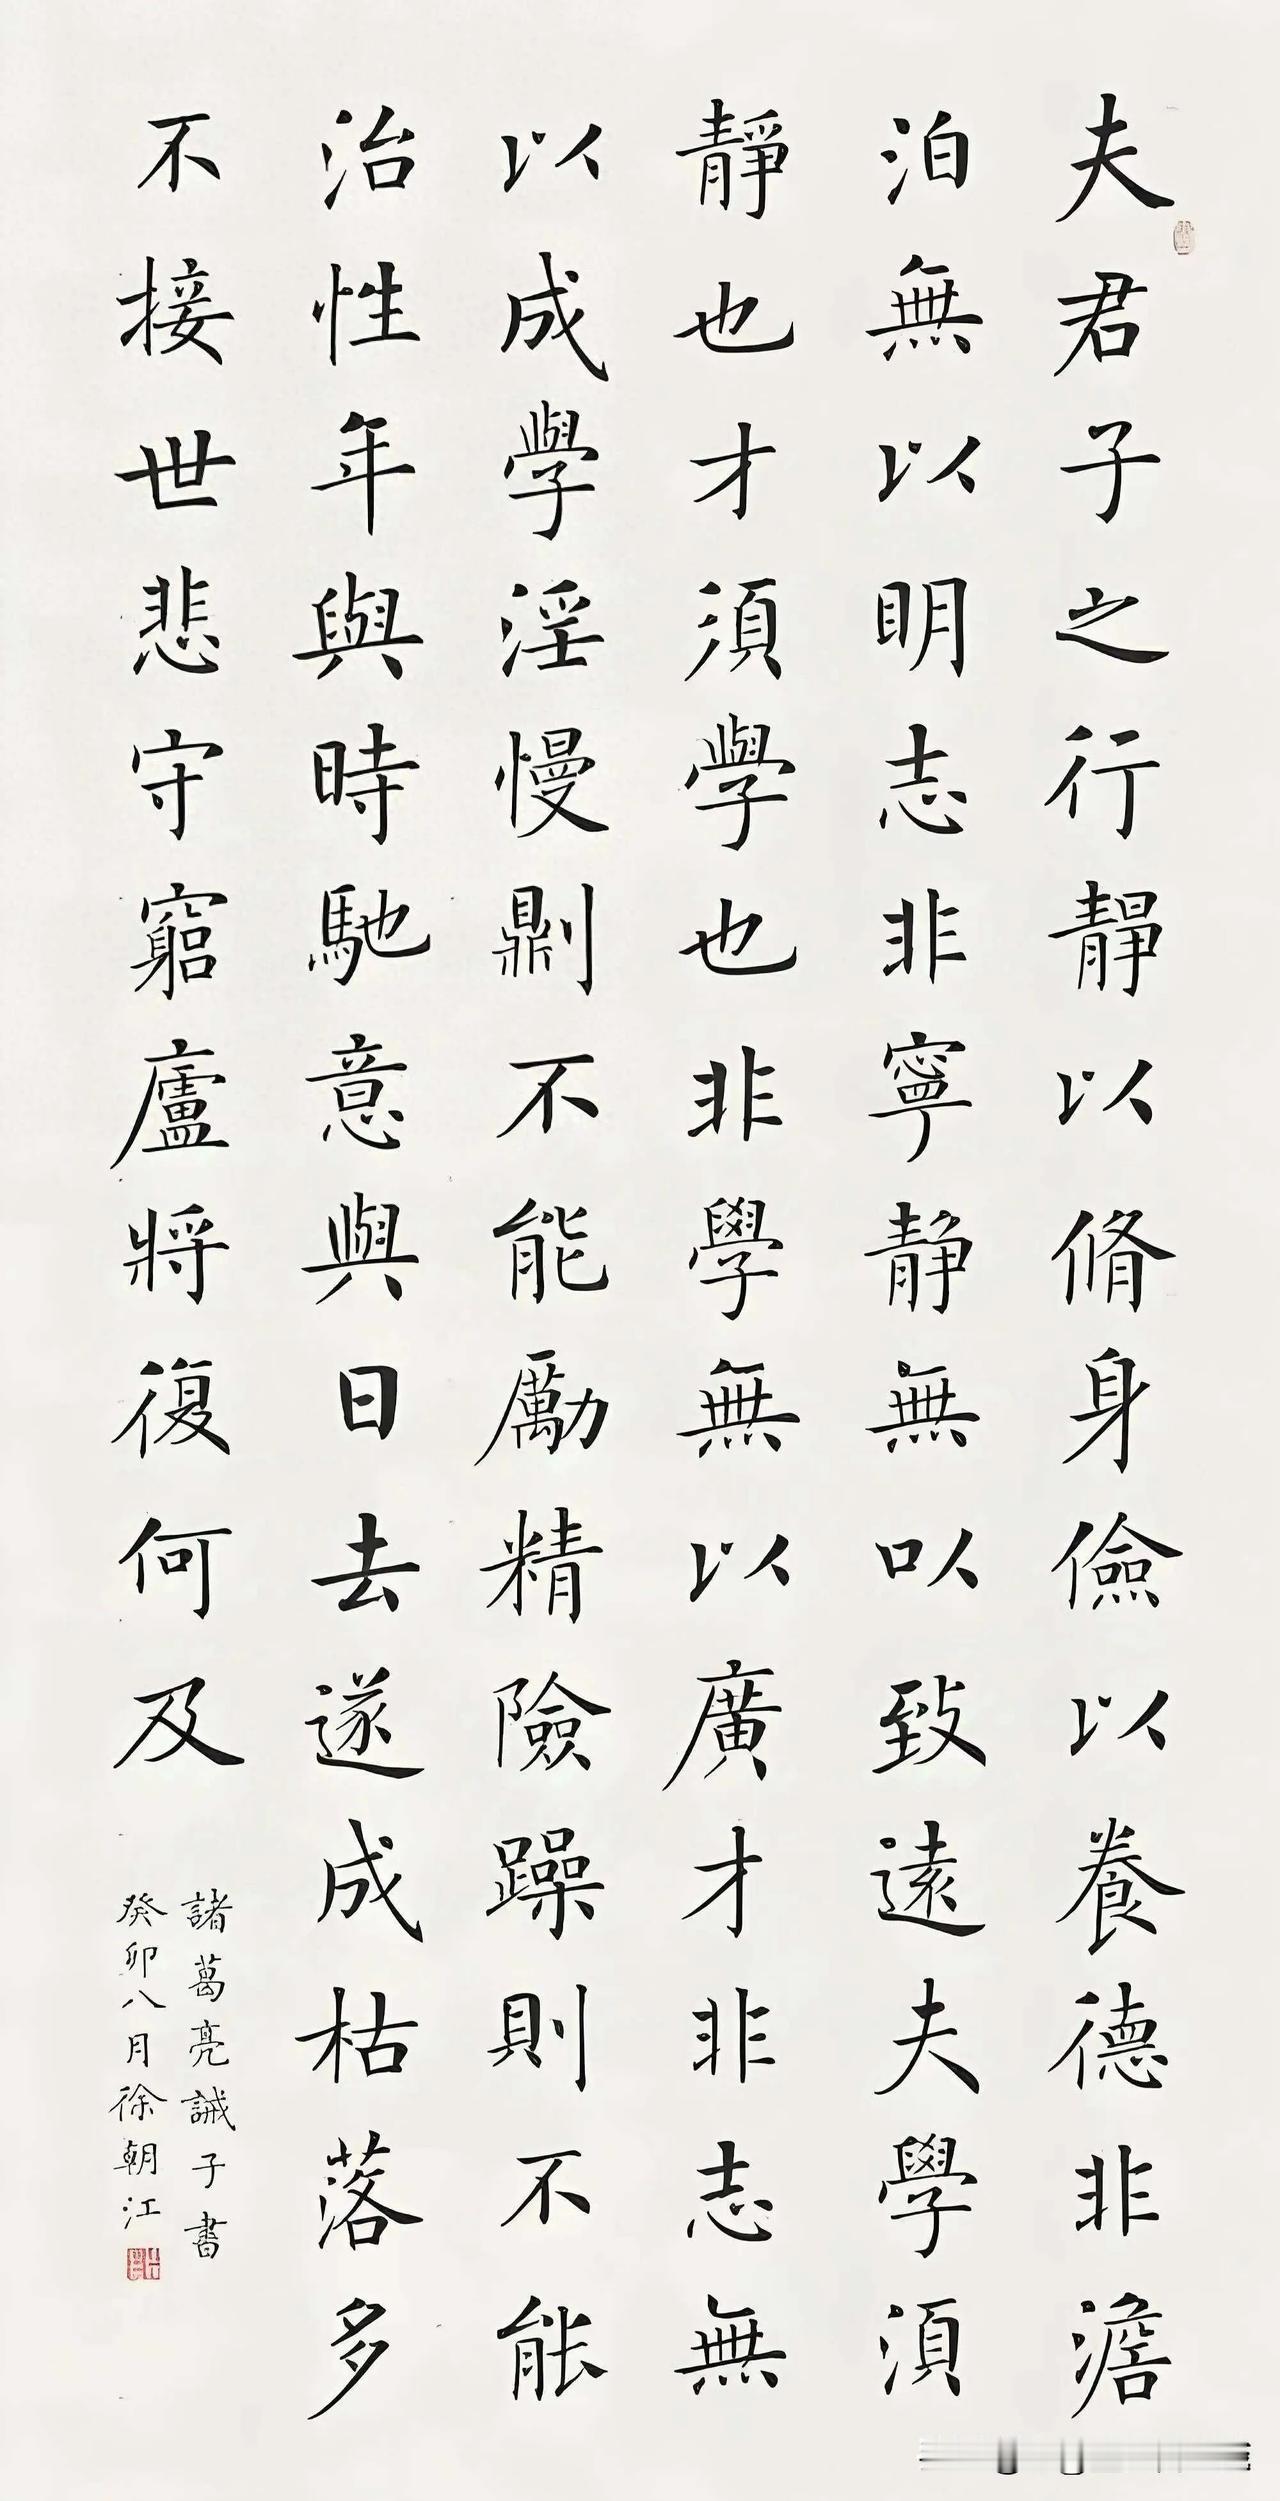 夫君子之行靜以脩身儉以養德非澹
泊無以明志非寧静無以致遠夫學須
靜也才須學也非學無以廣才非志無
以成學淫慢則不能勵精險躁則不能
治性年與時馳意與日去遂成枯落多
不接世悲守窮廬將復何及
諸葛亮誡子書
癸卯八月徐朝江